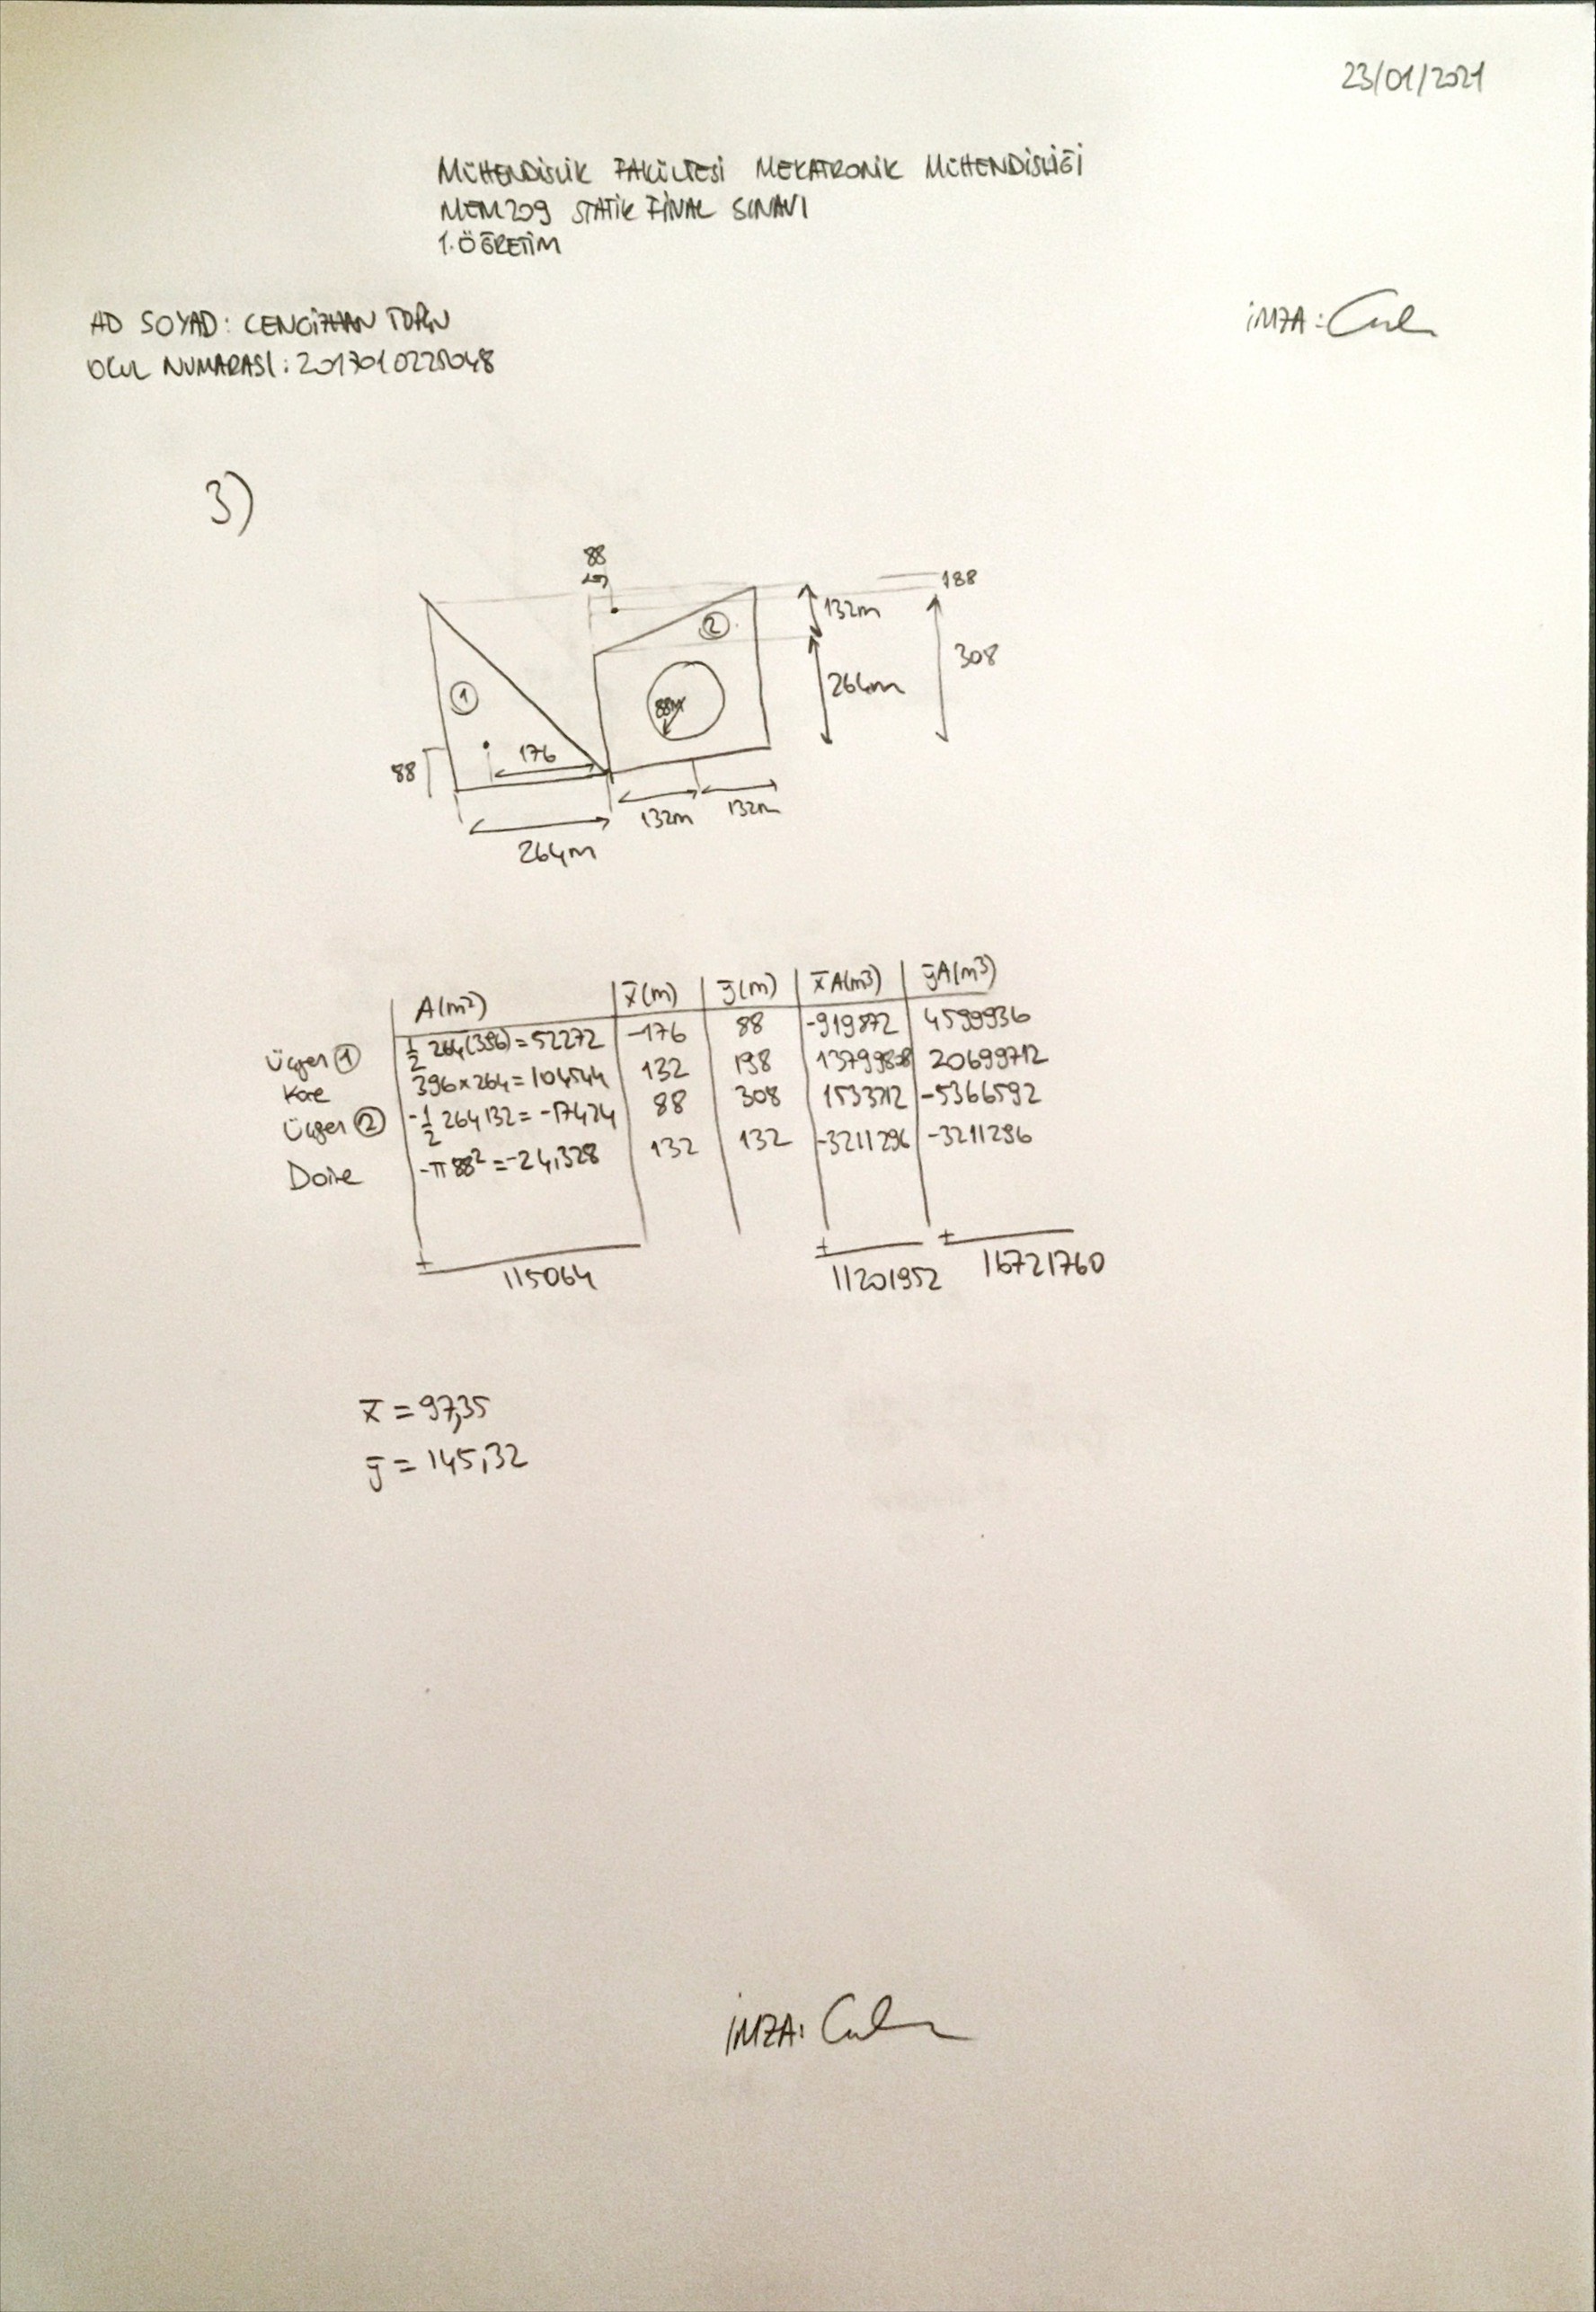 23/01/2021
MÜHENDİSLİK FAKÜLTESİ MEKATRONİK MÜHENDİSLİĞİ
MEM209 STATİK FİNAL SINAVI
1. ÖĞRETİM
AD SOYAD: CENGİZHAN
İMZA:
OKUL NUMARASI:
3)
88
188
132m
②
308
①
264m
88m
176
88
132m
132m
264m
A(m²) x̄(m) ȳ(m) x̄A(m³) ȳA(m³)
Üçgen ① ½ 264(396) = 52272 -176 88 -919872 4599936
Kare 396x264 = 104544 132 198 20699712
Üçgen ② -½ 264 132 = -17424 88 308 -5366592
Daire -π 88² = -24,328 132 132 -3211296 -3211296
+ 115064 + 11201952 + 16721760
x̄ = 97,35
ȳ = 145,32
İMZA: